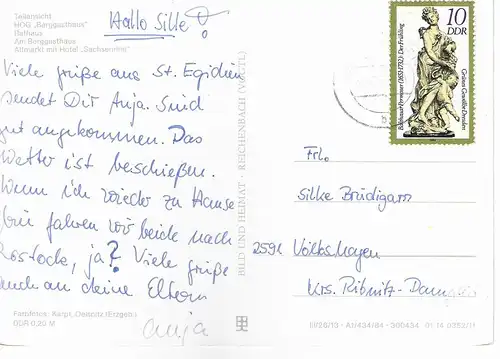 Teilansicht
HOG „Berggasthaus“
Rathaus
Am Berggasthaus
Altmarkt mit Hotel „Sachsenring“
Hallo Silke!
Viele grüße aus St. Egidien
sendet Dir Anja. Sind
gut angekommen. Das
Wetter ist beschießen.
Wenn ich wieder zu Hause
bin fahren wir beide nach
Rostock, ja? Viele grüße
auch an deine Eltern
Anja
Farbfotos: Oelsnitz (Erzgeb.)
DDR 0,20 M
BILD UND HEIMAT · REICHENBACH (VOGTL)
10
DDR
Balthasar Permoser (1651-1732) Der Frühling
Grünes Gewölbe Dresden
Frl.
Silke Brüdigam
2591 Volkshagen
Krs. Ribnitz-Damgarten
III/26/13 · A1/434/84 · 300434 01 14 0352/11